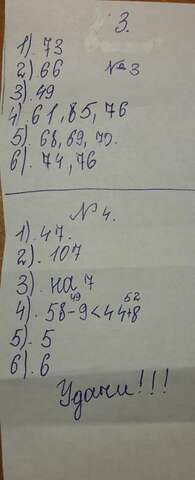 3.
1). 73
2). 66 №3
3). 49
4). 61, 85, 76
5). 68, 69, 70.
6). 74, 76
№ 4.
1). 47.
2). 107
3). на 7
49 52
4). 58-9<44+8
5). 5
6). 6
Удачи!!!